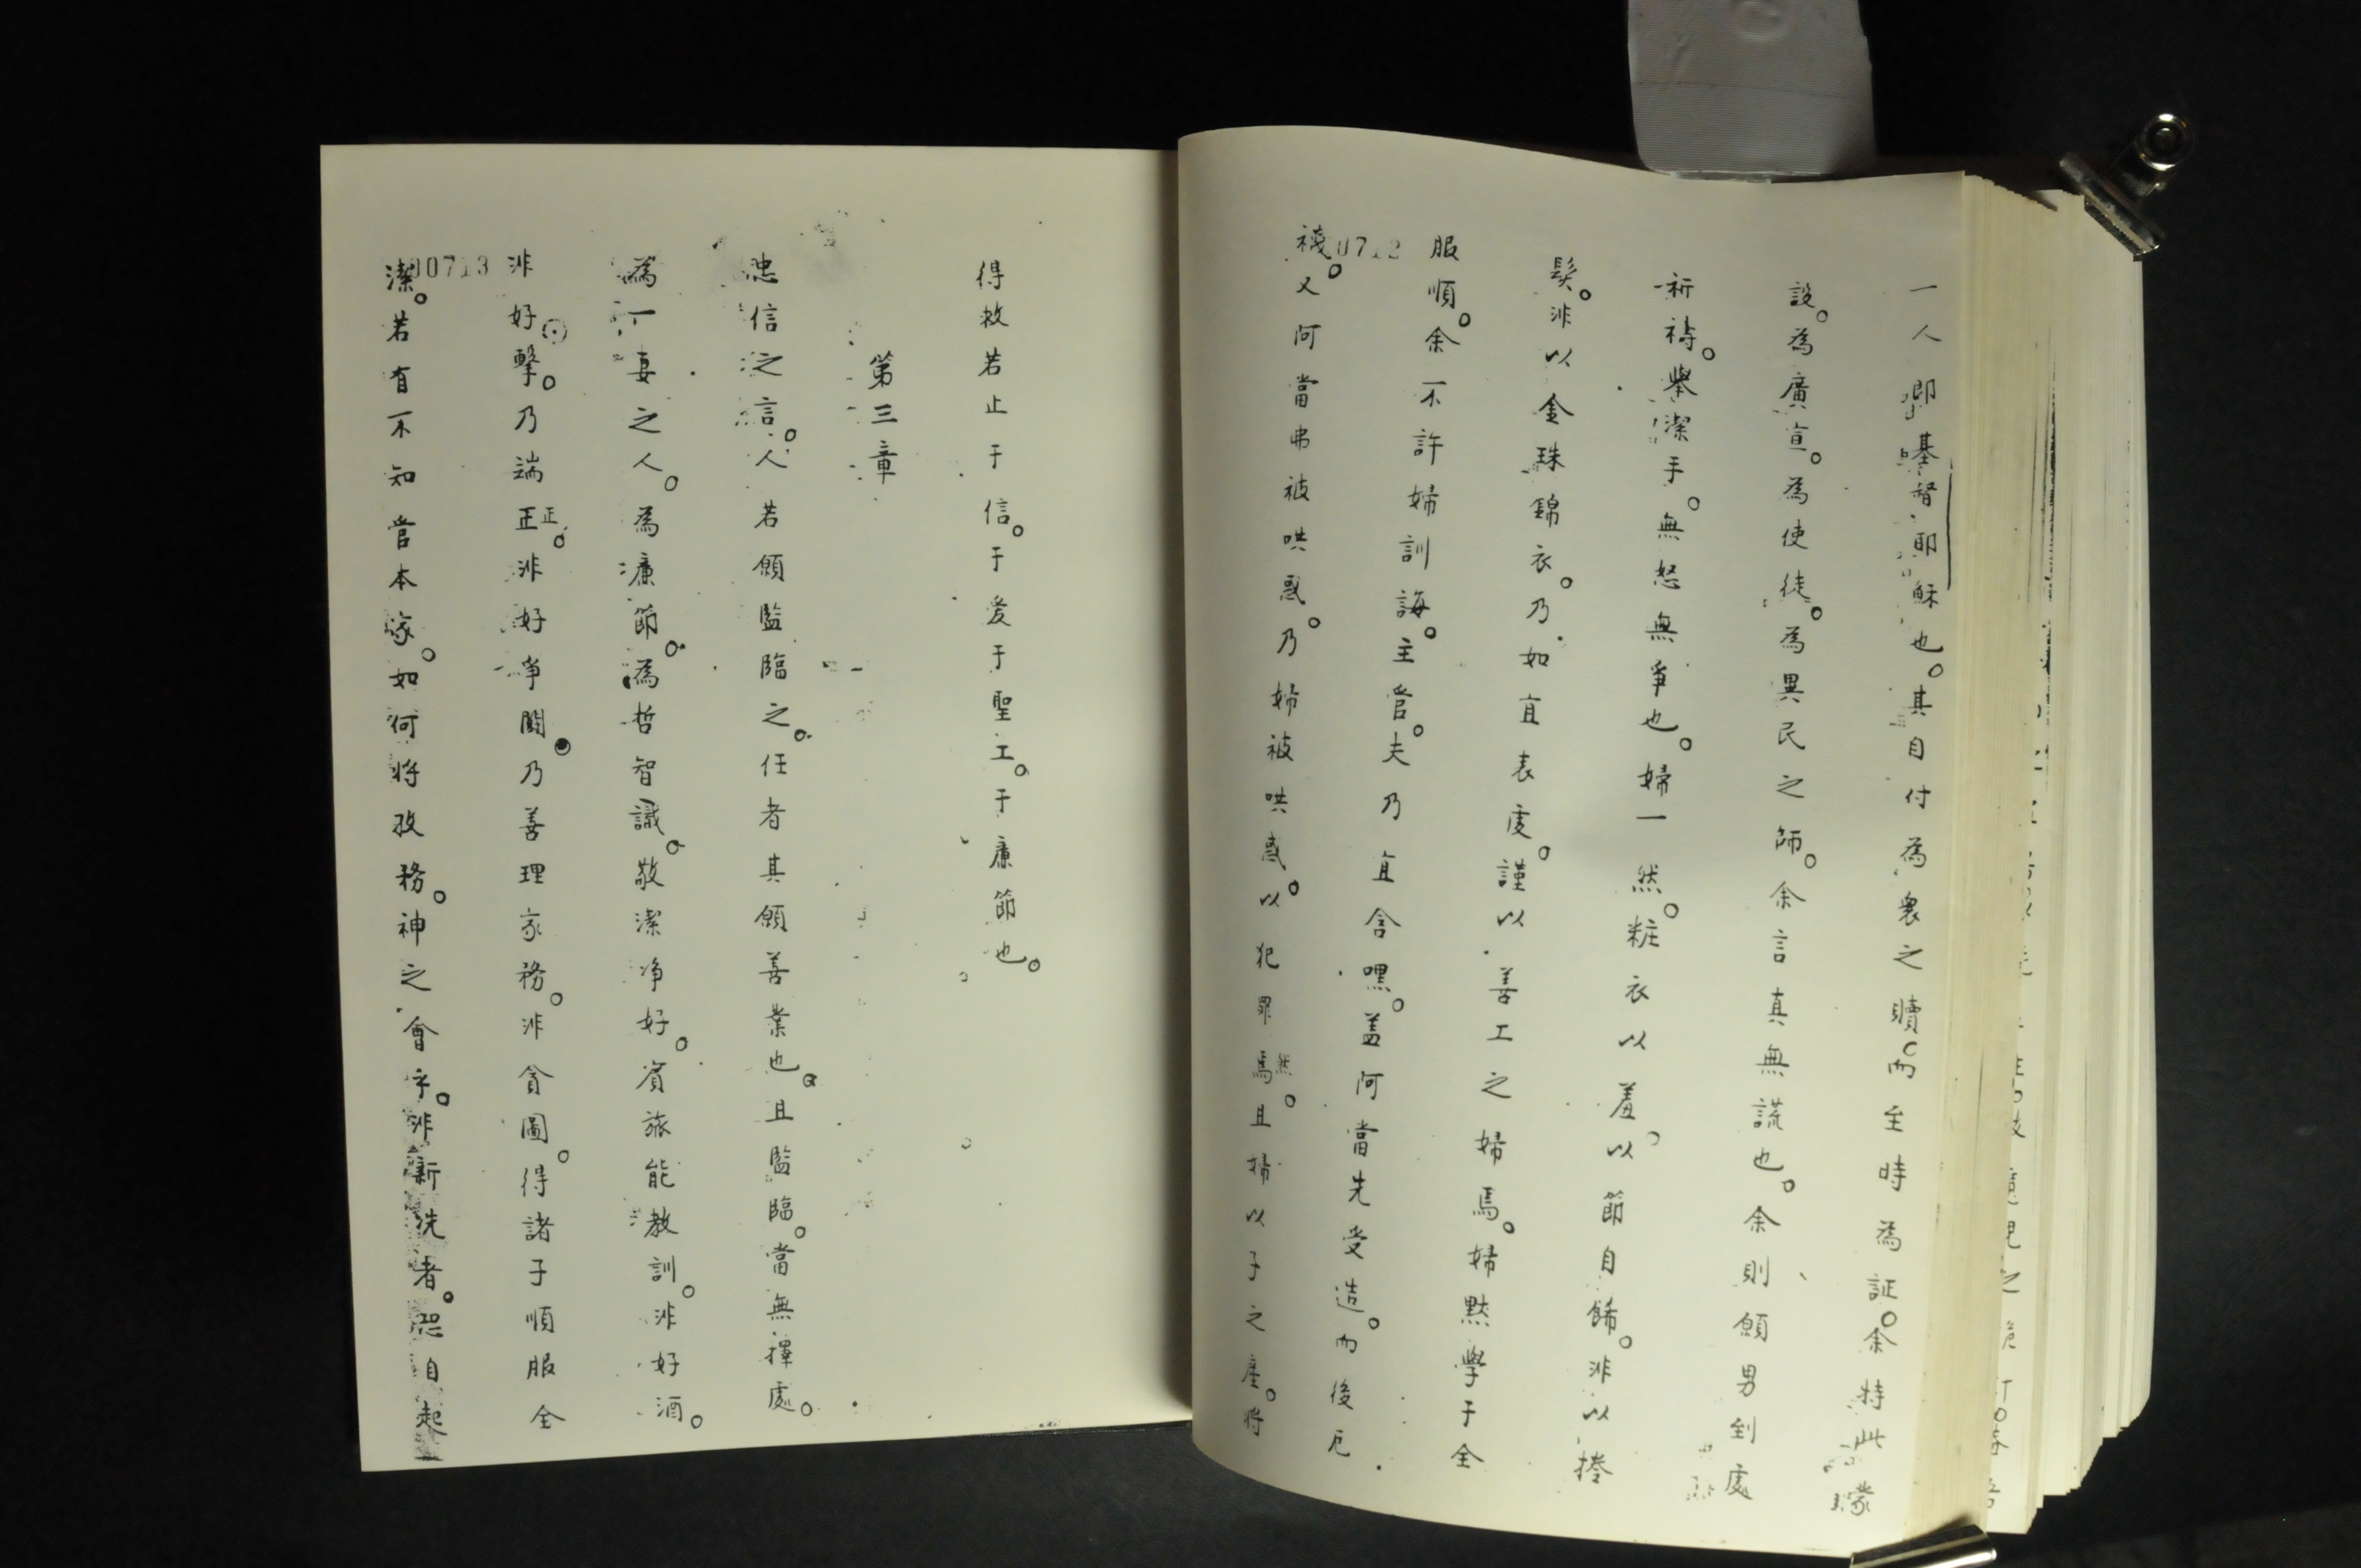 一人即基督耶穌也。其自付為衆之贖。而至時為証。余特此蒙
設。為廣宣。為使徒。為異民之師。余言真無謊也。余則願男到處
祈禱。舉潔手。無怒無爭也。婦一然。粧衣以羞。以節自餙。非以捲
髮。非以金珠錦衣。乃如宜表虔。謹以善工之婦焉。婦默學于全
服順。余不許婦訓誨。主管。夫乃宜含嘿。盖阿當先受造。而後厄
襪。又阿當弗被哄惑。乃婦被哄惑。以犯罪焉。然且婦以子之産。將
0712
得救若止于信。于爱于聖工。于廉節也。
第三章
忠信之言。人若願監臨之。任者其願善業也。且監臨。當無擇處。
為一妻之人。為廉節。為哲智識。敬潔净好。賓旅能教訓。非好酒。
非好擊。乃端正。正非好爭鬪。乃善理家務。非貪圖。得諸子順服全
潔。若有不知管本家。如何將孜務。神之會乎。非新洗者。恐自起
00713